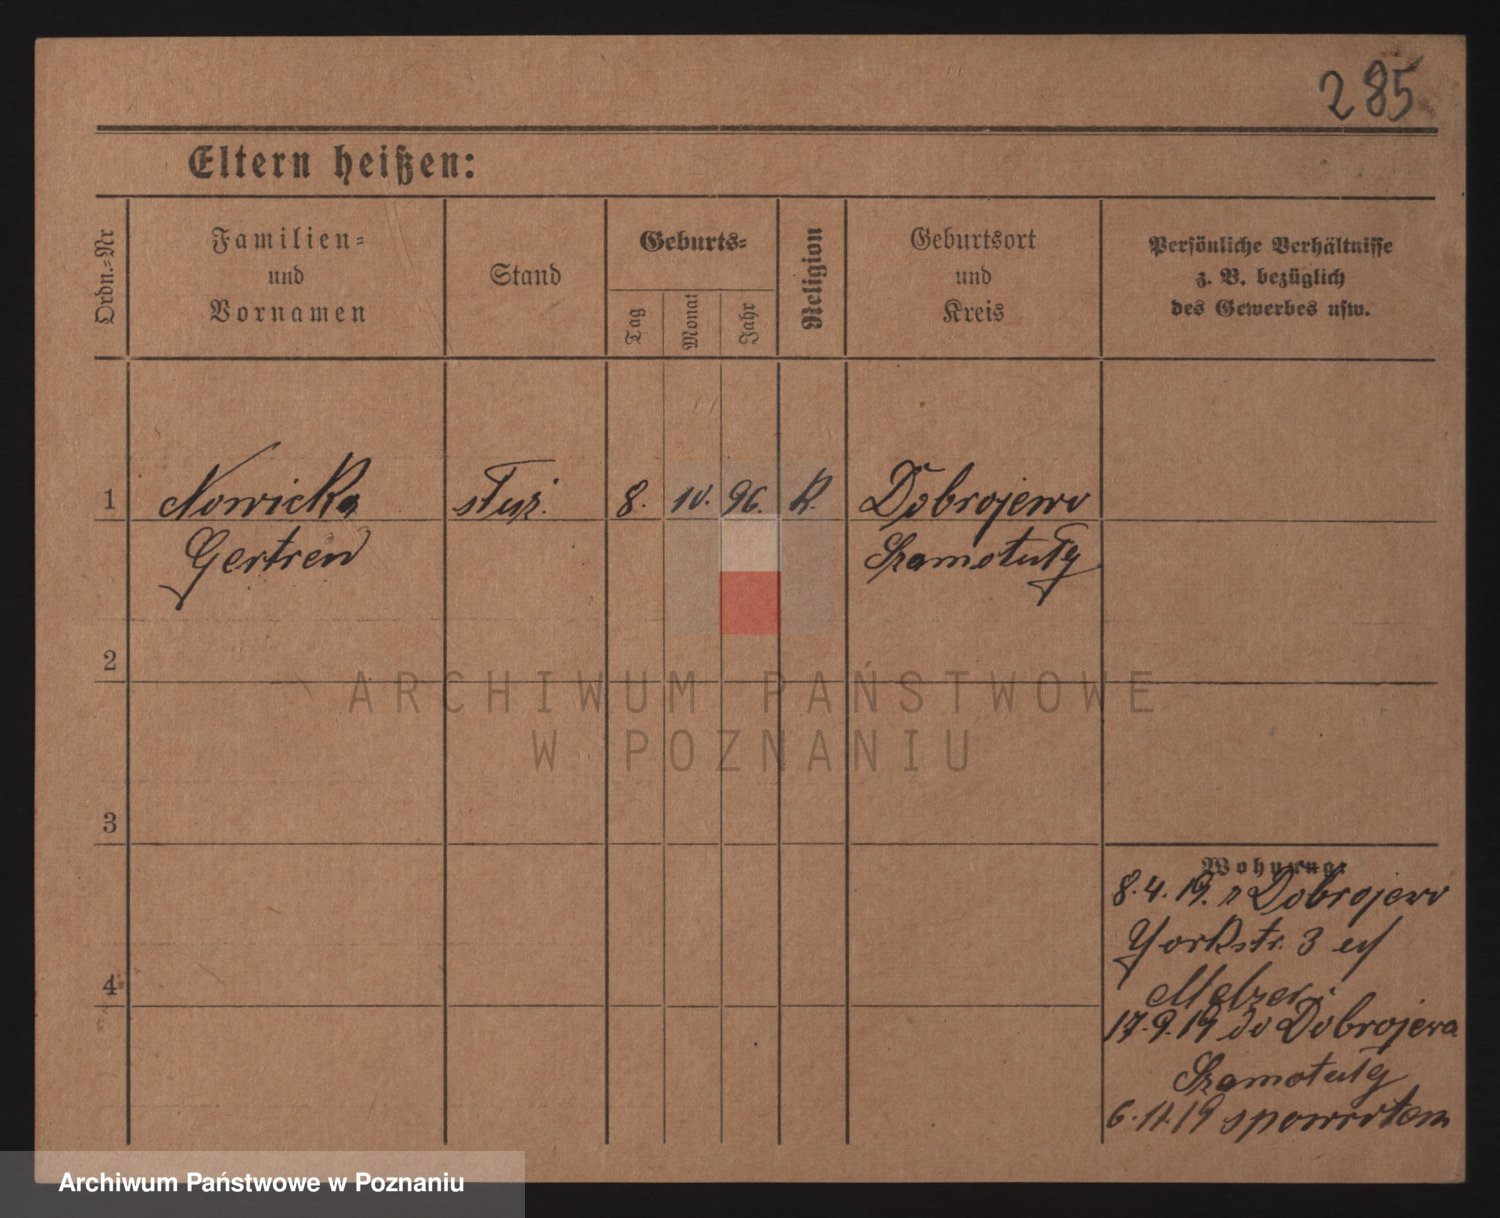 285
Eltern heißen:
Ordn.=Nr
Familien=
und
Vornamen
Stand
Geburts=
Tag
Monat
Jahr
Religion
Geburtsort
und
Kreis
Persönliche Verhältnisse
z. B. bezüglich
des Gewerbes usw.
1
Nowicka
Gertrud
służ.
8.
10.
96.
K.
Dobrojewo
Szamotuły
2
ARCHIWUM PAŃSTWOWE
W POZNANIU
3
Wohnung:
8.4.19. z Dobrojewo
Yorkstr. 3
4
Melzer
17.9.19 do Dobrojewa
Szamotuły
6.11.19 spowrotem
Archiwum Państwowe w Poznaniu